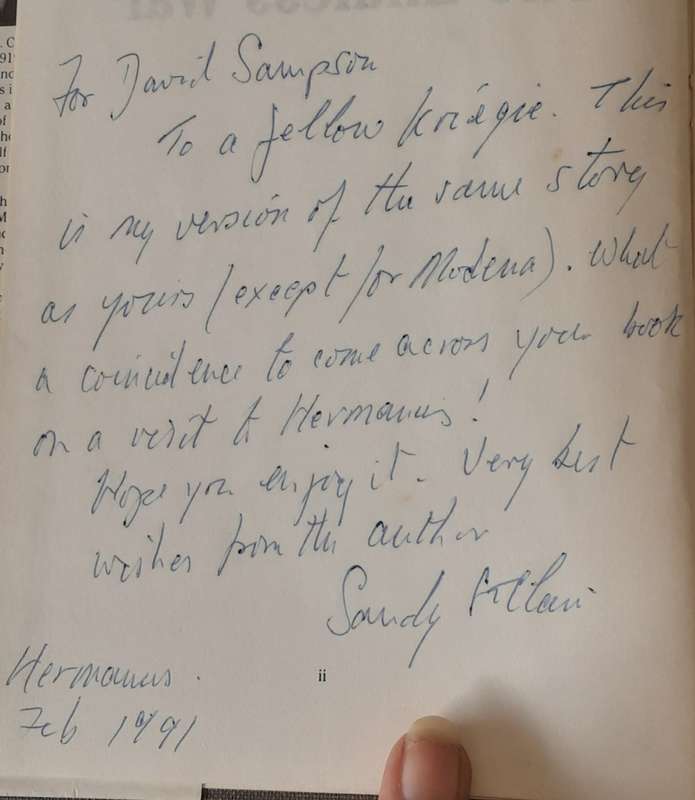 For David Sampson
To a fellow Kriegie. This
is my version of the same story
as yours (except for Modena). What
a coincidence to come across your book
on a visit to Hermanus!
Hope you enjoy it. Very best
wishes from the author
Sandy St Clair
Hermanus.
Feb 1991
ii